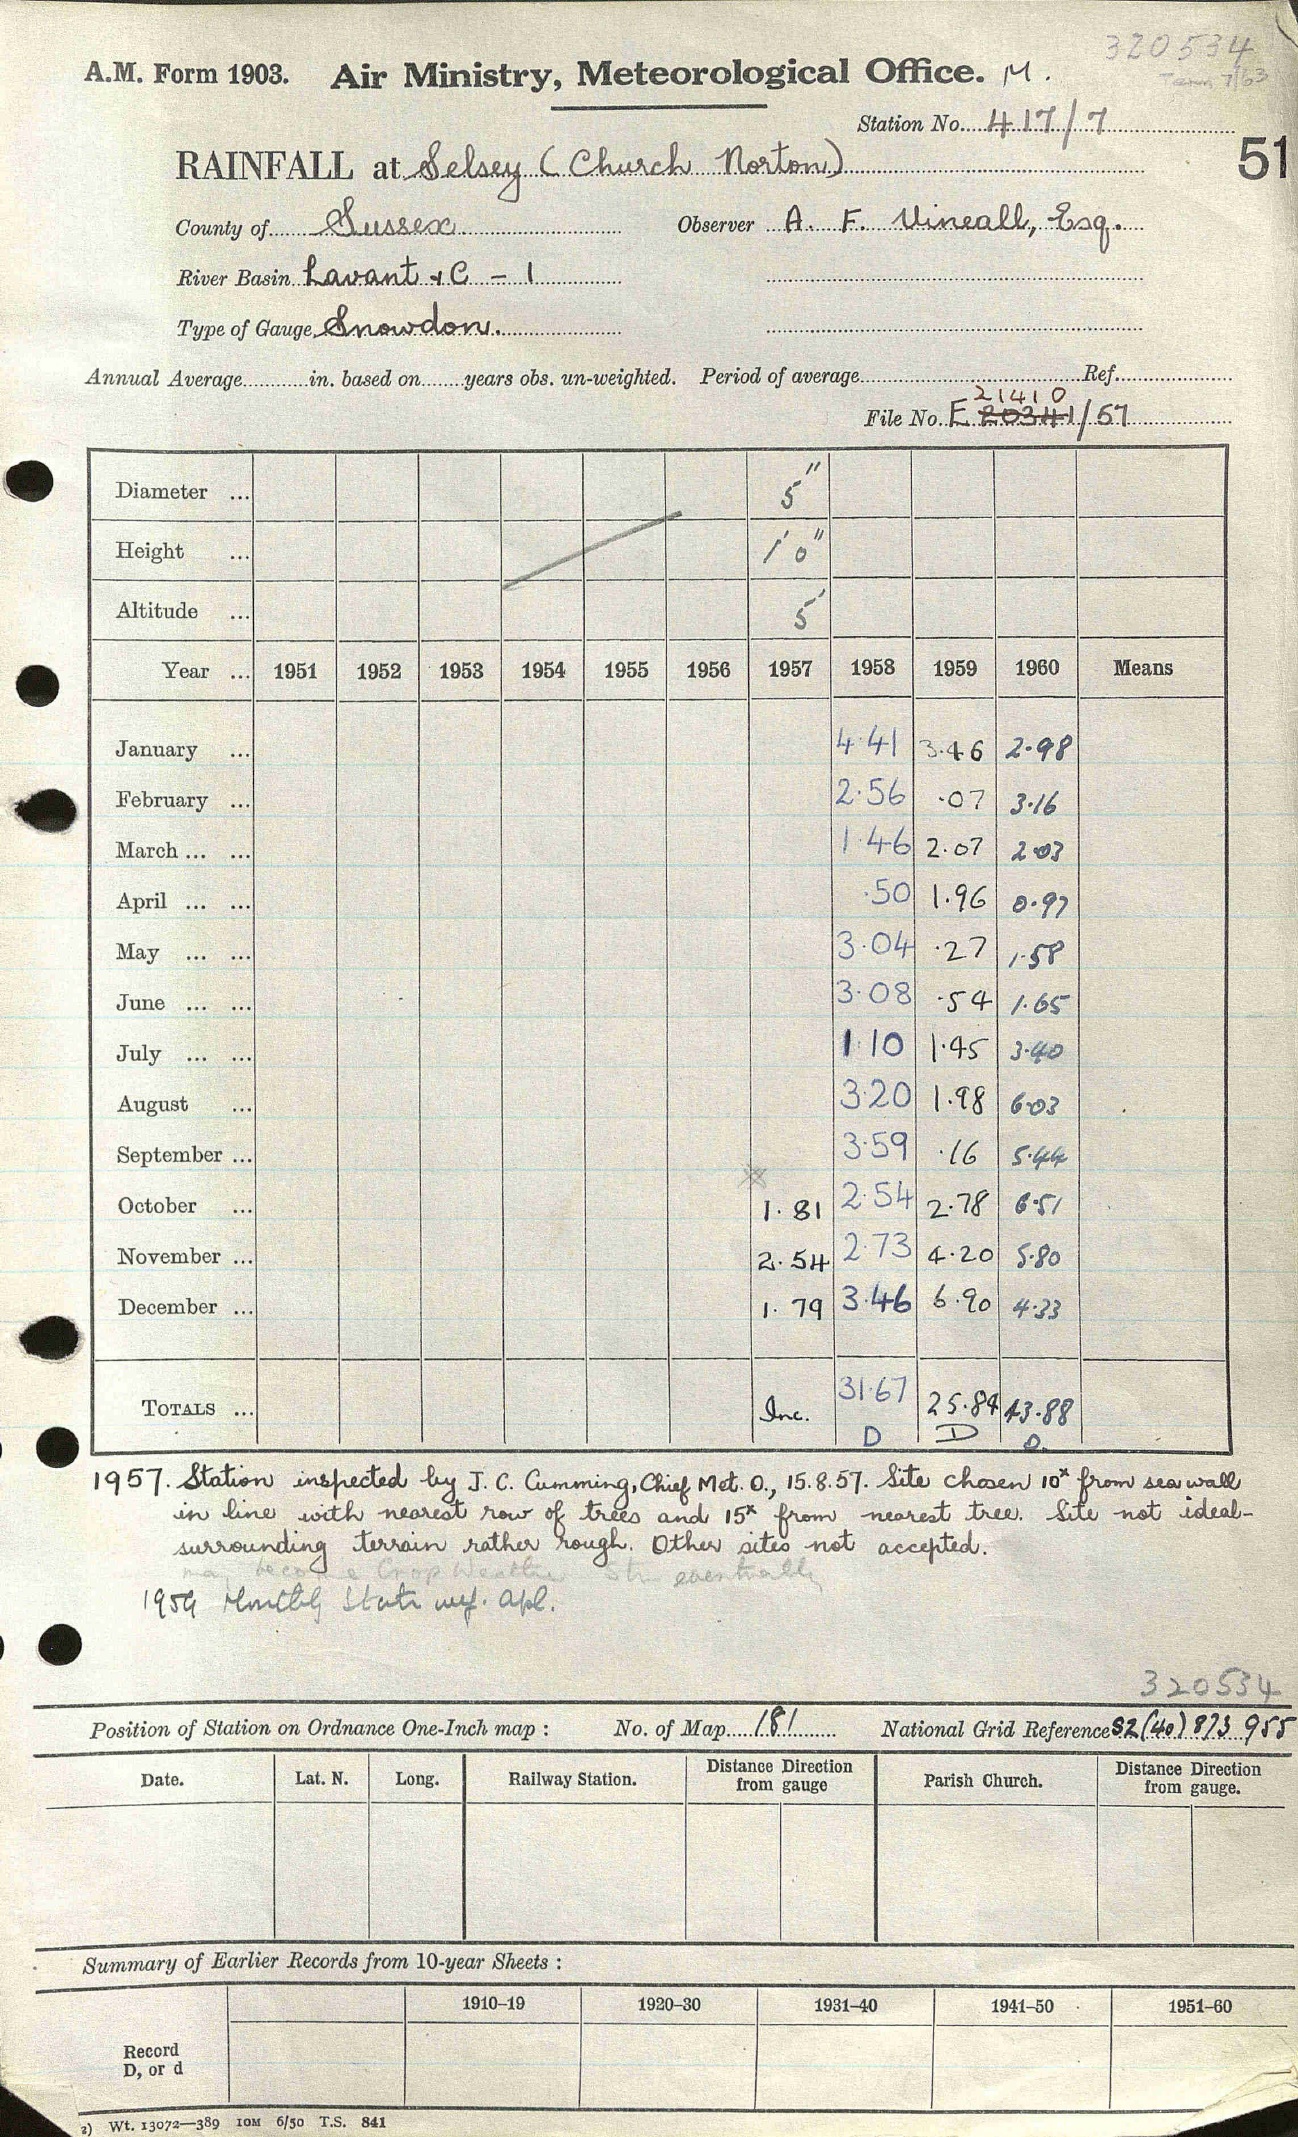 320534
A.M. Form 1903. Air Ministry, Meteorological Office. M.
Station No. 417/7
51
RAINFALL at Selsey (Church Norton)
County of Sussex Observer A. F. Vineall, Esq.
River Basin Lavant &C - 1
Type of Gauge Snowdon.
Annual Average in. based on years obs. un-weighted. Period of average Ref.
21410
File No. E 20341/57
Diameter ... 5"
Height ... 1'0"
Altitude ... 5'
Year ... 1951 1952 1953 1954 1955 1956 1957 1958 1959 1960 Means
January ... 4.41 3.46 2.98
February ... 2.56 .07 3.16
March ... ... 1.46 2.07 2.03
April ... ... .50 1.96 0.97
May ... ... 3.04 .27 1.58
June ... ... 3.08 .54 1.65
July ... ... 1.10 1.45 3.40
August ... 3.20 1.98 6.03
September ... 3.59 .16 5.44
October ... 1.81 2.54 2.78 6.51
November ... 2.54 2.73 4.20 5.80
December ... 1.79 3.46 6.90 4.33
TOTALS ... Inc. 31.67 25.84 43.88
D D D
1957. Station inspected by J. C. Cumming, Chief Met. O., 15.8.57. Site chosen 10x from sea wall
in line with nearest row of trees and 15x from nearest tree. Site not ideal-
surrounding terrain rather rough. Other sites not accepted.
may become Crop Weather Stn eventually
1959 Monthly Statn wef. Apl.
320534
Position of Station on Ordnance One-Inch map : No. of Map 181 National Grid Reference SZ(40) 873 955
Date. Lat. N. Long. Railway Station. Distance Direction from gauge Parish Church. Distance Direction from gauge.
Summary of Earlier Records from 10-year Sheets :
1910–19 1920–30 1931–40 1941–50 1951–60
Record
D, or d
2) Wt. 13072—389 10M 6/50 T.S. 841